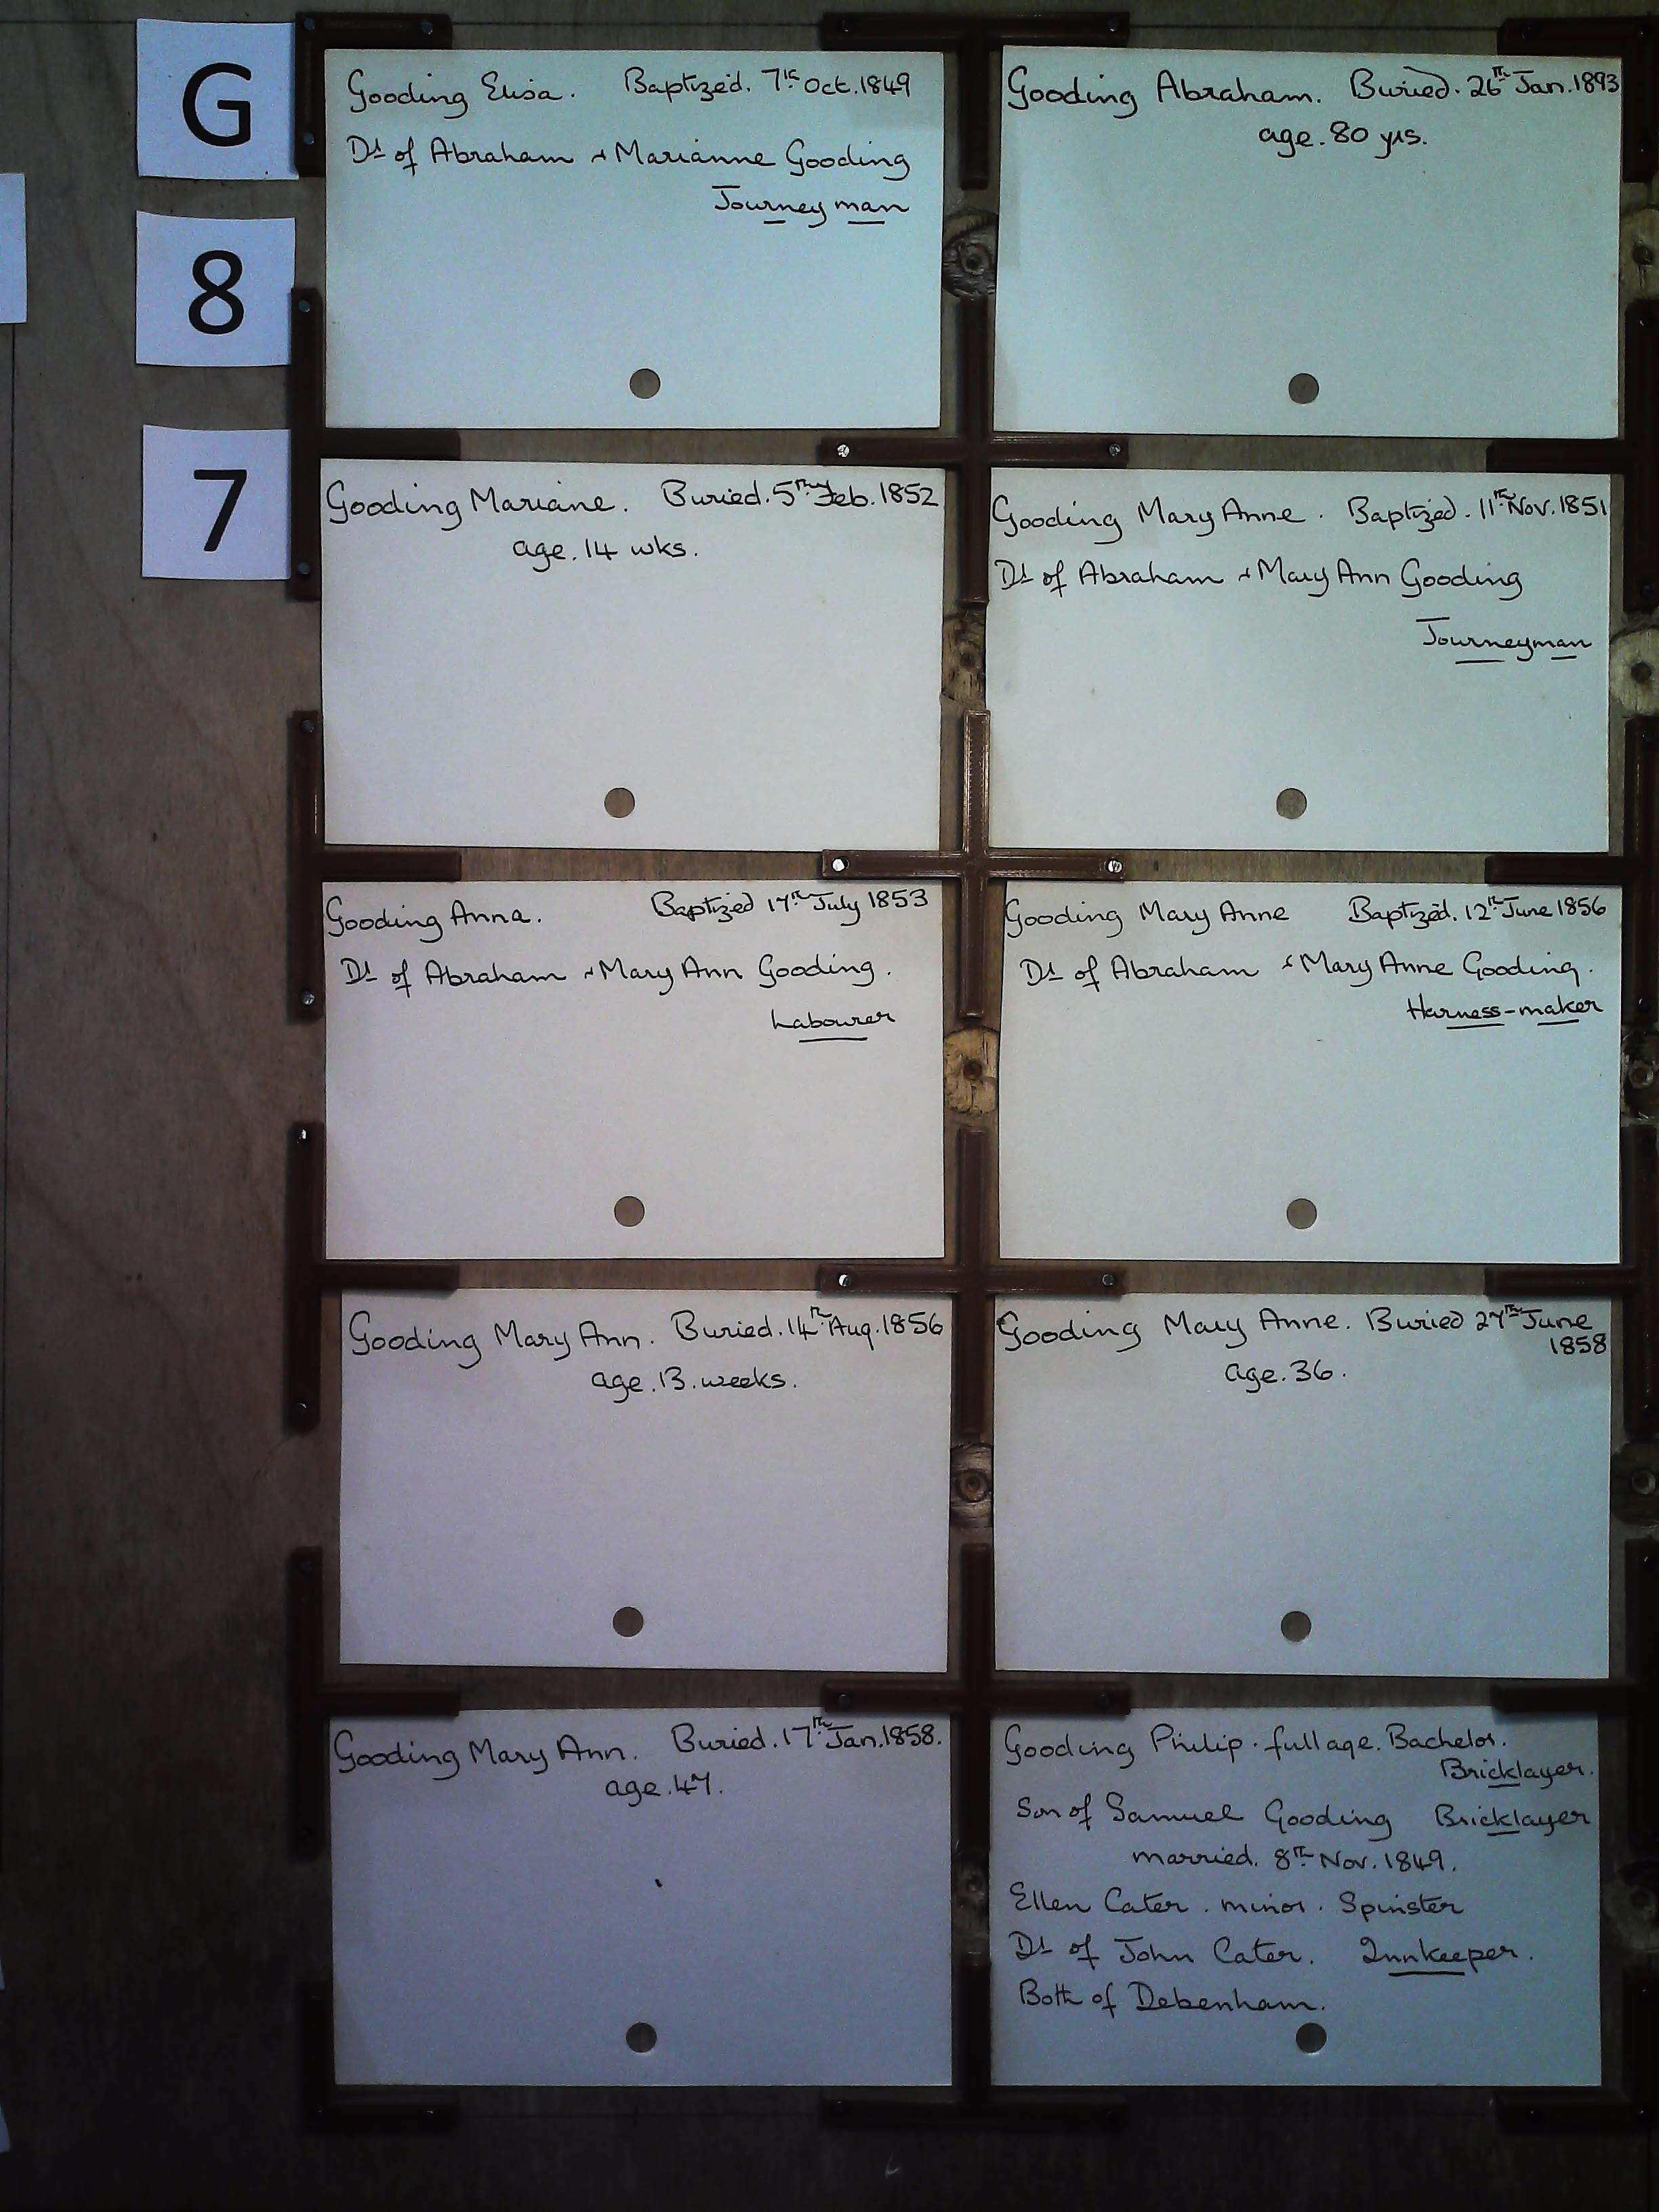 G
8
7
Gooding Elisa. Baptized. 7th Oct. 1849
Dt of Abraham & Marianne Gooding
Journeyman
Gooding Abraham. Buried. 26th Jan. 1893
age. 80 yrs.
Gooding Mariane. Buried. 5th Feb. 1852
age. 14 wks.
Gooding Mary Anne. Baptized. 11th Nov. 1851
Dt of Abraham & Mary Ann Gooding
Journeyman
Gooding Anna. Baptized 17th July 1853
Dt of Abraham & Mary Ann Gooding.
Labourer
Gooding Mary Anne Baptized. 12th June 1856
Dt of Abraham & Mary Anne Gooding.
Harness-maker
Gooding Mary Ann. Buried. 14th Aug. 1856
age. 13. weeks.
Gooding Mary Anne. Buried 27th June
1858
age. 36.
Gooding Mary Ann. Buried. 17th Jan. 1858.
age. 47.
Gooding Philip. full age. Bachelor.
Bricklayer.
Son of Samuel Gooding Bricklayer
married. 8th Nov. 1849.
Ellen Cater. minor. Spinster
Dt of John Cater. Innkeeper.
Both of Debenham.